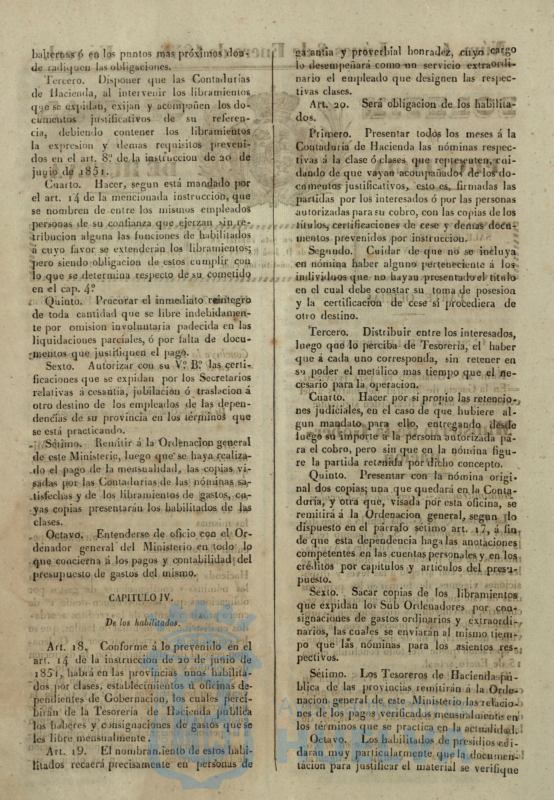 balternos ó en los puntos mas próximos don-
de radiquen las obligaciones.
Tercero. Disponer que las Contadurías
de Hacienda, al intervenir los libramientos
que se expidan, exijan y acompañen los do-
cumentos justificativos de su referen-
cia, debiendo contener los libramientos
la expresion y demas requisitos preveni-
dos en el art. 8.º de la instruccion de 20 de
junio de 1851.
Cuarto. Hacer, segun está mandado por
el art. 14 de la mencionada instruccion, que
se nombren de entre los mismos empleados
personas de su confianza que ejerzan sin re-
tribucion alguna las funciones de habilitados
á cuyo favor se extenderán los libramientos;
pero siendo obligacion de estos cumplir con
lo que se determina respecto de su cometido
en el cap. 4.º
Quinto. Procurar el inmediato reintegro
de toda cantidad que se libre indebidamen-
te por omision involuntaria padecida en las
liquidaciones parciales, ó por falta de docu-
mentos que justifiquen el pago.
Sexto. Autorizar con su V.º B.º las certi-
ficaciones que se expidan por los Secretarios
relativas á cesantía, jubilacion ó traslacion á
otro destino de los empleados de las depen-
dencias de su provincia en los términos que
se está practicando.
Sétimo. Remitir á la Ordenacion general
de este Ministerio, luego que se haya realiza-
do el pago de la mensualidad, las copias vi-
sadas por las Contadurías de las nóminas sa-
tisfechas y de los libramientos de gastos, cu-
yas copias presentarán los habilitados de las
clases.
Octavo. Entenderse de oficio con el Or-
denador general del Ministerio en todo lo
que concierna á los pagos y contabilidad del
presupuesto de gastos del mismo.
CAPITULO IV.
De los habilitados.
Art. 18. Conforme á lo prevenido en el
art. 14 de la instruccion de 20 de junio de
1851, habrá en las provincias unos habilita-
dos por clases, establecimientos ú oficinas de-
pendientes de Gobernacion, los cuales perci-
birán de la Tesorería de Hacienda pública
los haberes y consignaciones de gastos que se
les libre mensualmente.
Art. 19. El nombramiento de estos habi-
litados recaerá precisamente en personas de
garantía y proverbial honradez, cuyo cargo
lo desempeñará como un servicio extraordi-
nario el empleado que designen las respec-
tivas clases.
Art. 20. Será obligacion de los habilita-
dos.
Primero. Presentar todos los meses á la
Contaduría de Hacienda las nóminas respec-
tivas á la clase ó clases que representen, cui-
dando de que vayan acompañados de los do-
cumentos justificativos, esto es, firmadas las
partidas por los interesados ó por las personas
autorizadas para su cobro, con las copias de los
títulos, certificaciones de cese y demas docu-
mentos prevenidos por instruccion.
Segundo. Cuidar de que no se incluya
en nómina haber alguno perteneciente á los
individuos que no hayan presentado el título
en el cual debe constar su toma de posesion
y la certificacion de cese si procediera de
otro destino.
Tercero. Distribuir entre los interesados,
luego que lo perciba de Tesorería, el haber
que á cada uno corresponda, sin retener en
su poder el metálico mas tiempo que el ne-
cesario para la operacion.
Cuarto. Hacer por si propio las retencio-
nes judiciales, en el caso de que hubiere al-
gun mandato para ello, entregando desde
luego su importe á la persona autorizada pa-
ra el cobro, pero sin que en la nómina figu-
re la partida retenida por dicho concepto.
Quinto. Presentar con la nómina origi-
nal dos copias; una que quedará en la Conta-
duría, y otra que, visada por esta oficina, se
remitirá á la Ordenacion general, segun lo
dispuesto en el párrafo sétimo art. 17, á fin
de que esta dependencia haga las anotaciones
competentes en las cuentas personales y en los
créditos por capitulos y artículos del presu-
puesto.
Sexto. Sacar copias de los libramientos
que expidan los Sub Ordenadores por con-
signaciones de gastos ordinarios y extraordi-
narios, las cuales se enviarán al mismo tiem-
po que las nóminas para los asientos res-
pectivos.
Sétimo. Los Tesoreros de Hacienda pú-
blica de las provincias remitirán á la Orde-
nacion general de este Ministerio las relacio-
nes de los pagos verificados mensualmente en
los términos que se practica en la actualidad.
Octavo. Los habilitados de presidios cui-
darán muy particularmente que la documen-
tacion para justificar el material se verifique